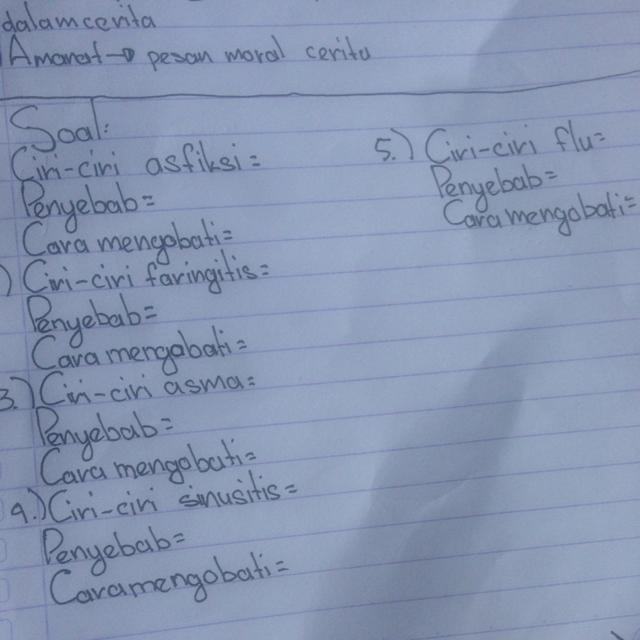 dalam cerita
Amanat → pesan moral cerita
Soal:
Ciri-ciri asfiksi=
Penyebab=
Cara mengobati=
) Ciri-ciri faringitis=
Penyebab=
Cara mengobati=
3) Ciri-ciri asma=
Penyebab=
Cara mengobati=
4) Ciri-ciri sinusitis=
Penyebab=
Cara mengobati=
5.) Ciri-ciri flu=
Penyebab=
Cara mengobati=